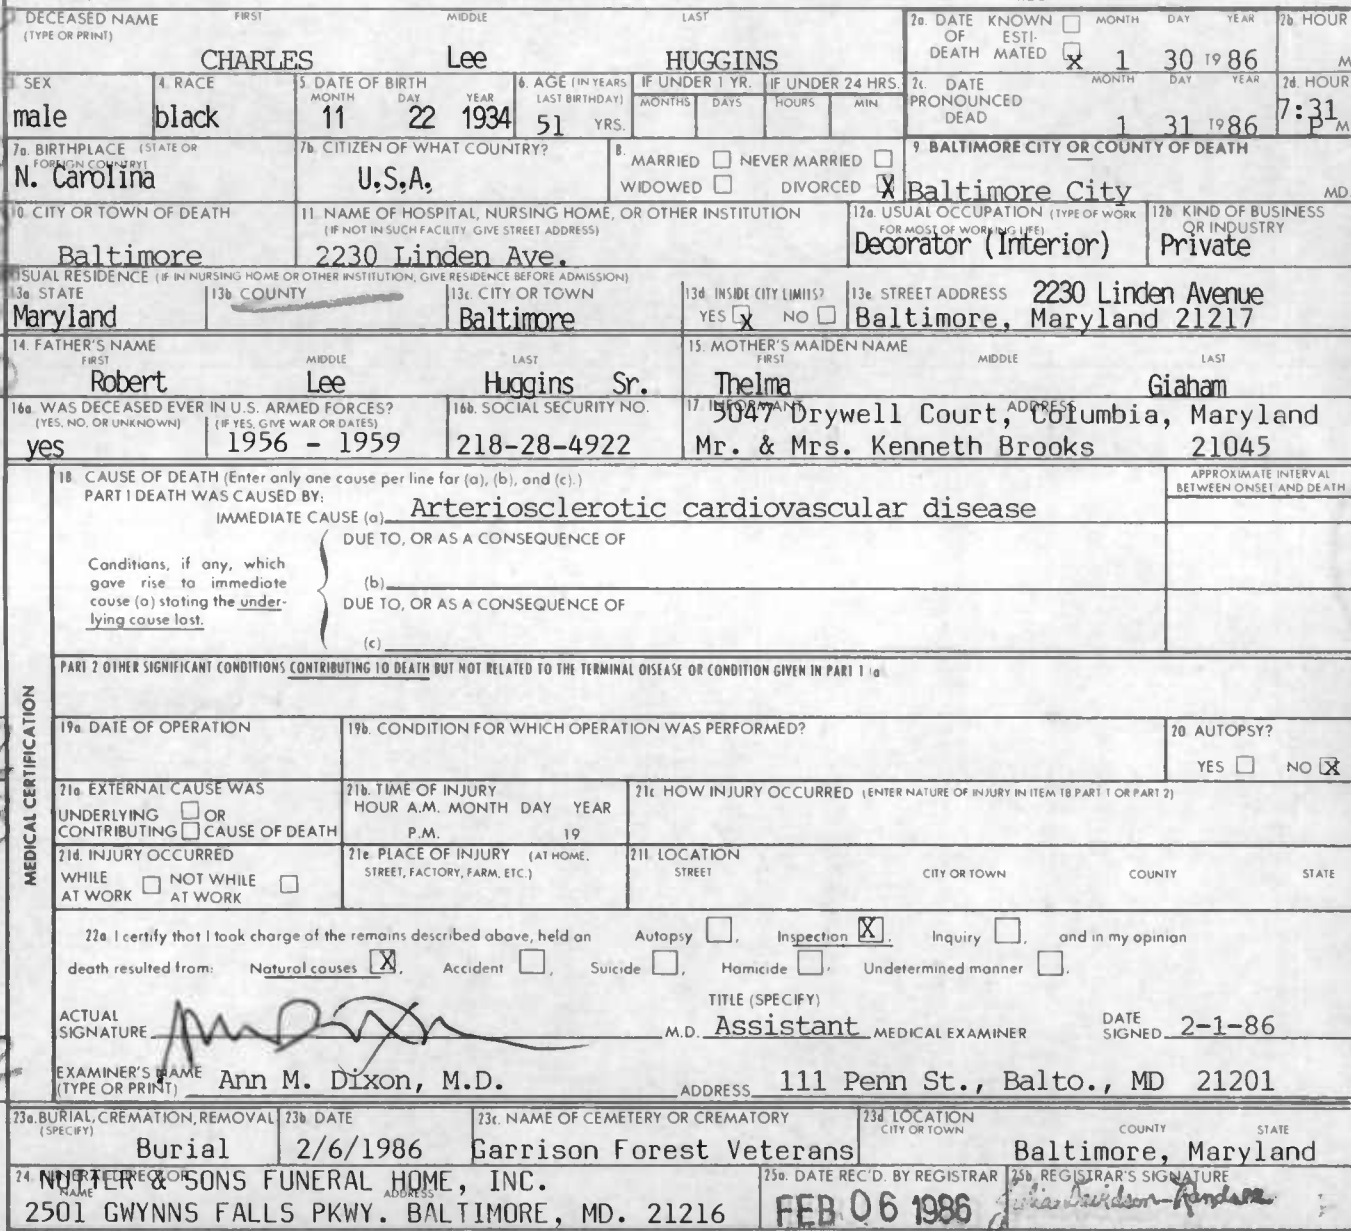 DECEASED NAME FIRST MIDDLE LAST
(TYPE OR PRINT)
CHARLES Lee HUGGINS
2a. DATE OF DEATH KNOWN ☐ ESTI-MATED ☒ MONTH DAY YEAR 1 30 1986
2b HOUR M
3 SEX male
4. RACE black
5. DATE OF BIRTH MONTH DAY YEAR 11 22 1934
6. AGE (IN YEARS LAST BIRTHDAY) 51 YRS.
IF UNDER 1 YR. MONTHS DAYS
IF UNDER 24 HRS. HOURS MIN
2c. DATE PRONOUNCED DEAD MONTH DAY YEAR 1 31 1986
2d. HOUR 7:31 P M
7a. BIRTHPLACE (STATE OR FOREIGN COUNTRY) N. Carolina
7b. CITIZEN OF WHAT COUNTRY? U.S.A.
8. MARRIED ☐ NEVER MARRIED ☐
WIDOWED ☐ DIVORCED ☒
9 BALTIMORE CITY OR COUNTY OF DEATH
Baltimore City MD.
10 CITY OR TOWN OF DEATH
Baltimore
11 NAME OF HOSPITAL, NURSING HOME, OR OTHER INSTITUTION
(IF NOT IN SUCH FACILITY GIVE STREET ADDRESS)
2230 Linden Ave.
12a. USUAL OCCUPATION (TYPE OF WORK FOR MOST OF WORKING LIFE)
Decorator (Interior)
12b KIND OF BUSINESS OR INDUSTRY
Private
USUAL RESIDENCE (IF IN NURSING HOME OR OTHER INSTITUTION, GIVE RESIDENCE BEFORE ADMISSION)
13a STATE Maryland
13b COUNTY
13c. CITY OR TOWN Baltimore
13d INSIDE CITY LIMITS? YES ☒ NO ☐
13e STREET ADDRESS 2230 Linden Avenue
Baltimore, Maryland 21217
14. FATHER'S NAME FIRST MIDDLE LAST
Robert Lee Huggins Sr.
15. MOTHER'S MAIDEN NAME FIRST MIDDLE LAST
Thelma Giaham
16a WAS DECEASED EVER IN U.S. ARMED FORCES?
(YES, NO, OR UNKNOWN) (IF YES, GIVE WAR OR DATES)
yes 1956 - 1959
16b. SOCIAL SECURITY NO.
218-28-4922
17 INFORMANT ADDRESS
5047 Drywell Court, Columbia, Maryland
Mr. & Mrs. Kenneth Brooks 21045
18 CAUSE OF DEATH (Enter only one cause per line for (a), (b), and (c).)
APPROXIMATE INTERVAL BETWEEN ONSET AND DEATH
PART I DEATH WAS CAUSED BY:
IMMEDIATE CAUSE (a) Arteriosclerotic cardiovascular disease
DUE TO, OR AS A CONSEQUENCE OF
Conditions, if any, which
gave rise to immediate
cause (a) stating the under-
lying cause last.
(b)
DUE TO, OR AS A CONSEQUENCE OF
(c)
PART 2 OTHER SIGNIFICANT CONDITIONS CONTRIBUTING TO DEATH BUT NOT RELATED TO THE TERMINAL DISEASE OR CONDITION GIVEN IN PART 1 (a
MEDICAL CERTIFICATION
19a DATE OF OPERATION
19b. CONDITION FOR WHICH OPERATION WAS PERFORMED?
20 AUTOPSY?
YES ☐ NO ☒
21a EXTERNAL CAUSE WAS
UNDERLYING ☐ OR
CONTRIBUTING ☐ CAUSE OF DEATH
21b. TIME OF INJURY
HOUR A.M. MONTH DAY YEAR
P.M. 19
21c HOW INJURY OCCURRED (ENTER NATURE OF INJURY IN ITEM 18 PART 1 OR PART 2)
21d. INJURY OCCURRED
WHILE AT WORK ☐ NOT WHILE AT WORK ☐
21e PLACE OF INJURY (AT HOME, STREET, FACTORY, FARM, ETC.)
21f. LOCATION
STREET CITY OR TOWN COUNTY STATE
22a I certify that I took charge of the remains described above, held an Autopsy ☐, Inspection ☒, Inquiry ☐, and in my opinion
death resulted from: Natural causes ☒, Accident ☐, Suicide ☐, Homicide ☐, Undetermined manner ☐.
ACTUAL SIGNATURE M.D.
TITLE (SPECIFY) Assistant MEDICAL EXAMINER
DATE SIGNED 2-1-86
EXAMINER'S NAME (TYPE OR PRINT) Ann M. Dixon, M.D.
ADDRESS 111 Penn St., Balto., MD 21201
23a. BURIAL, CREMATION, REMOVAL (SPECIFY) Burial
23b DATE 2/6/1986
23c. NAME OF CEMETERY OR CREMATORY Garrison Forest Veterans
23d LOCATION CITY OR TOWN COUNTY STATE
Baltimore, Maryland
24 FUNERAL DIRECTOR NAME ADDRESS
NUTTER & SONS FUNERAL HOME, INC.
2501 GWYNNS FALLS PKWY. BALTIMORE, MD. 21216
25a. DATE REC'D. BY REGISTRAR
FEB 06 1986
25b. REGISTRAR'S SIGNATURE
Julia Davidson-Randall